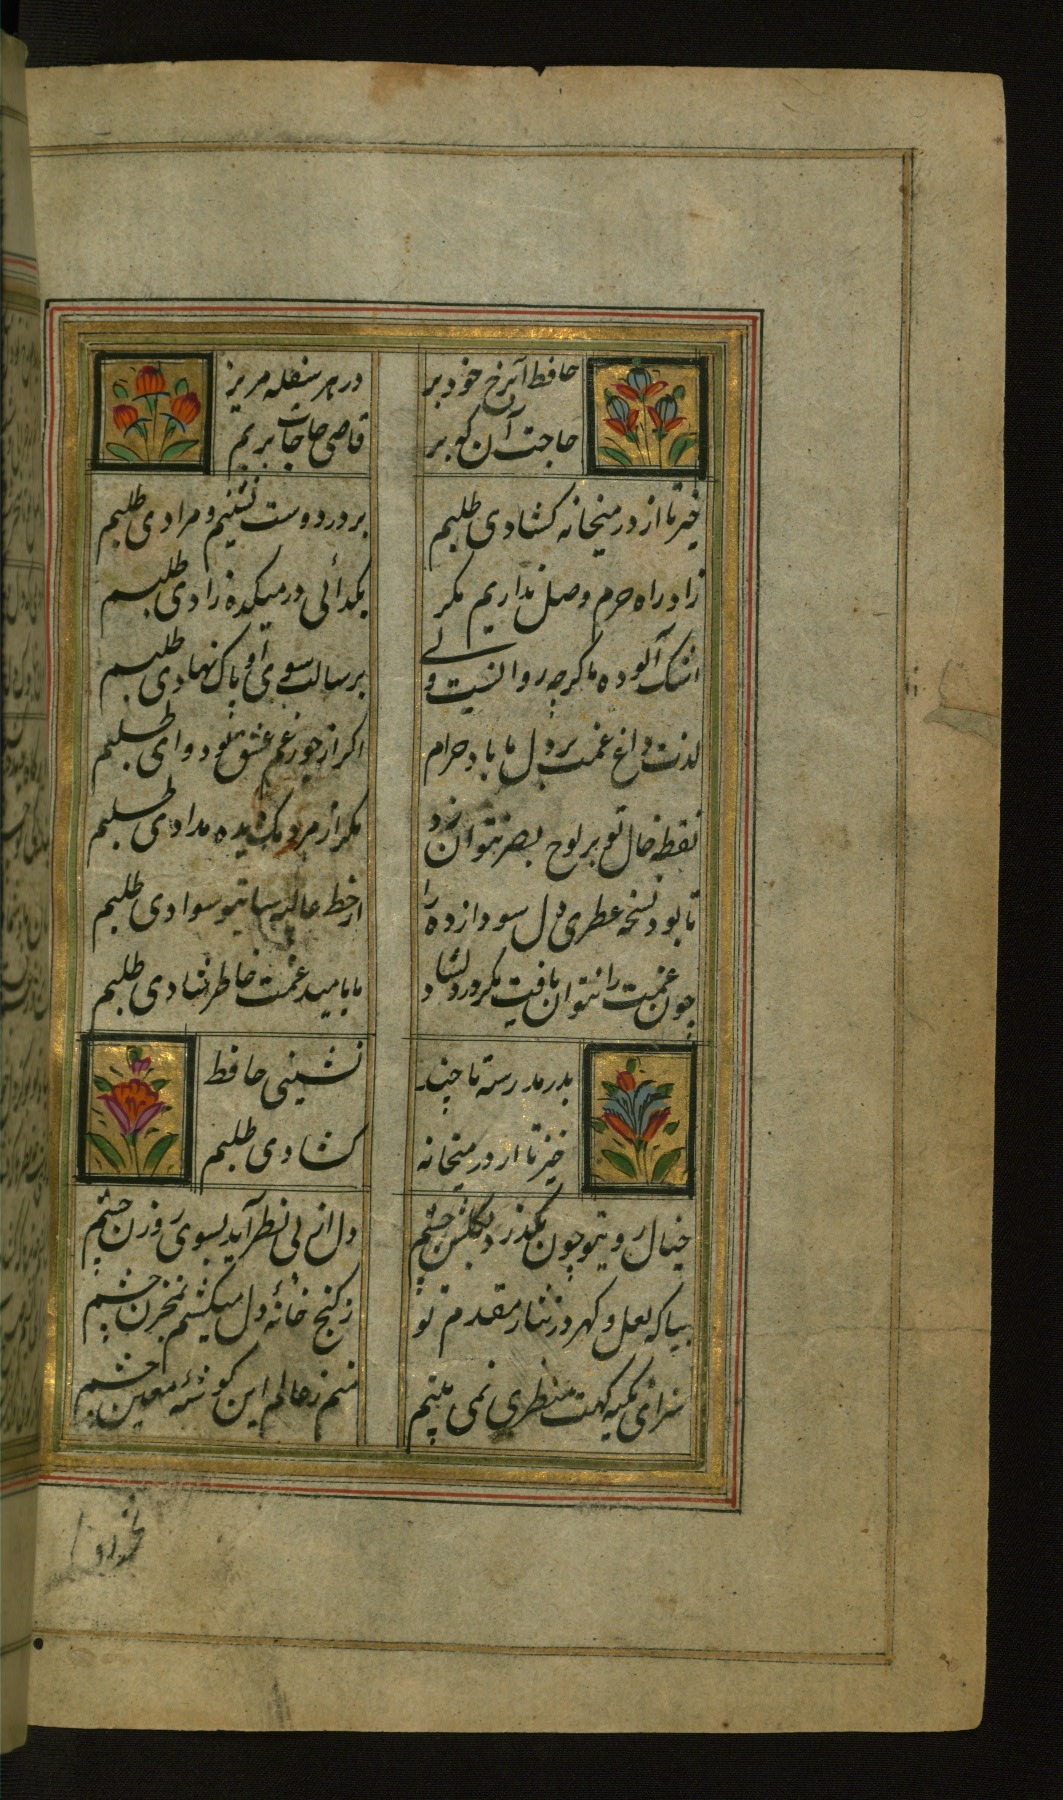 حافظ آب رخ خود بر
در هر سفله مریز
حاجت آن کو بر
قاضی حاجات بریم
خیز تا از در میخانه کشادی طلبیم
بر در دوست نشینیم و مرادی طلبیم
زاد راه حرم وصل نداریم مکر
بکدائی در میکده زادی طلبیم
اشک آلوده ما کرچه روانست ولی
برسالت سوی او پاک نهادی طلبیم
لذت داغ غمت بر دل ما باد حرام
اکر از جور غم عشق تو دوای طلبیم
نقطه خال تو بر لوح بصر نتوان زد
مکر از مردمک دیده مدادی طلبیم
تا بود نسخه عطری دل سودازده را
از خط عالیه سا تیو سوادی طلبیم
چون غمت را نتوان یافت مکر در دل شاد
ما بامید غمت خاطر شادی طلبیم
بدر مدرسه تا چند
نشینی حافظ
خیز تا از در میخانه
کشادی طلبیم
خیال روی تو چون بکذرد بکلشن چشم
دل از پی نظر آید بسوی روزن چشم
بیا که لعل و کهر در نثار مقدم تو
ز کنج خانهٔ دل میکشم بمخزن چشم
سزای تکیه کهت منظری نمی بینم
منم ز عالم این کوشهٔ معین چشم